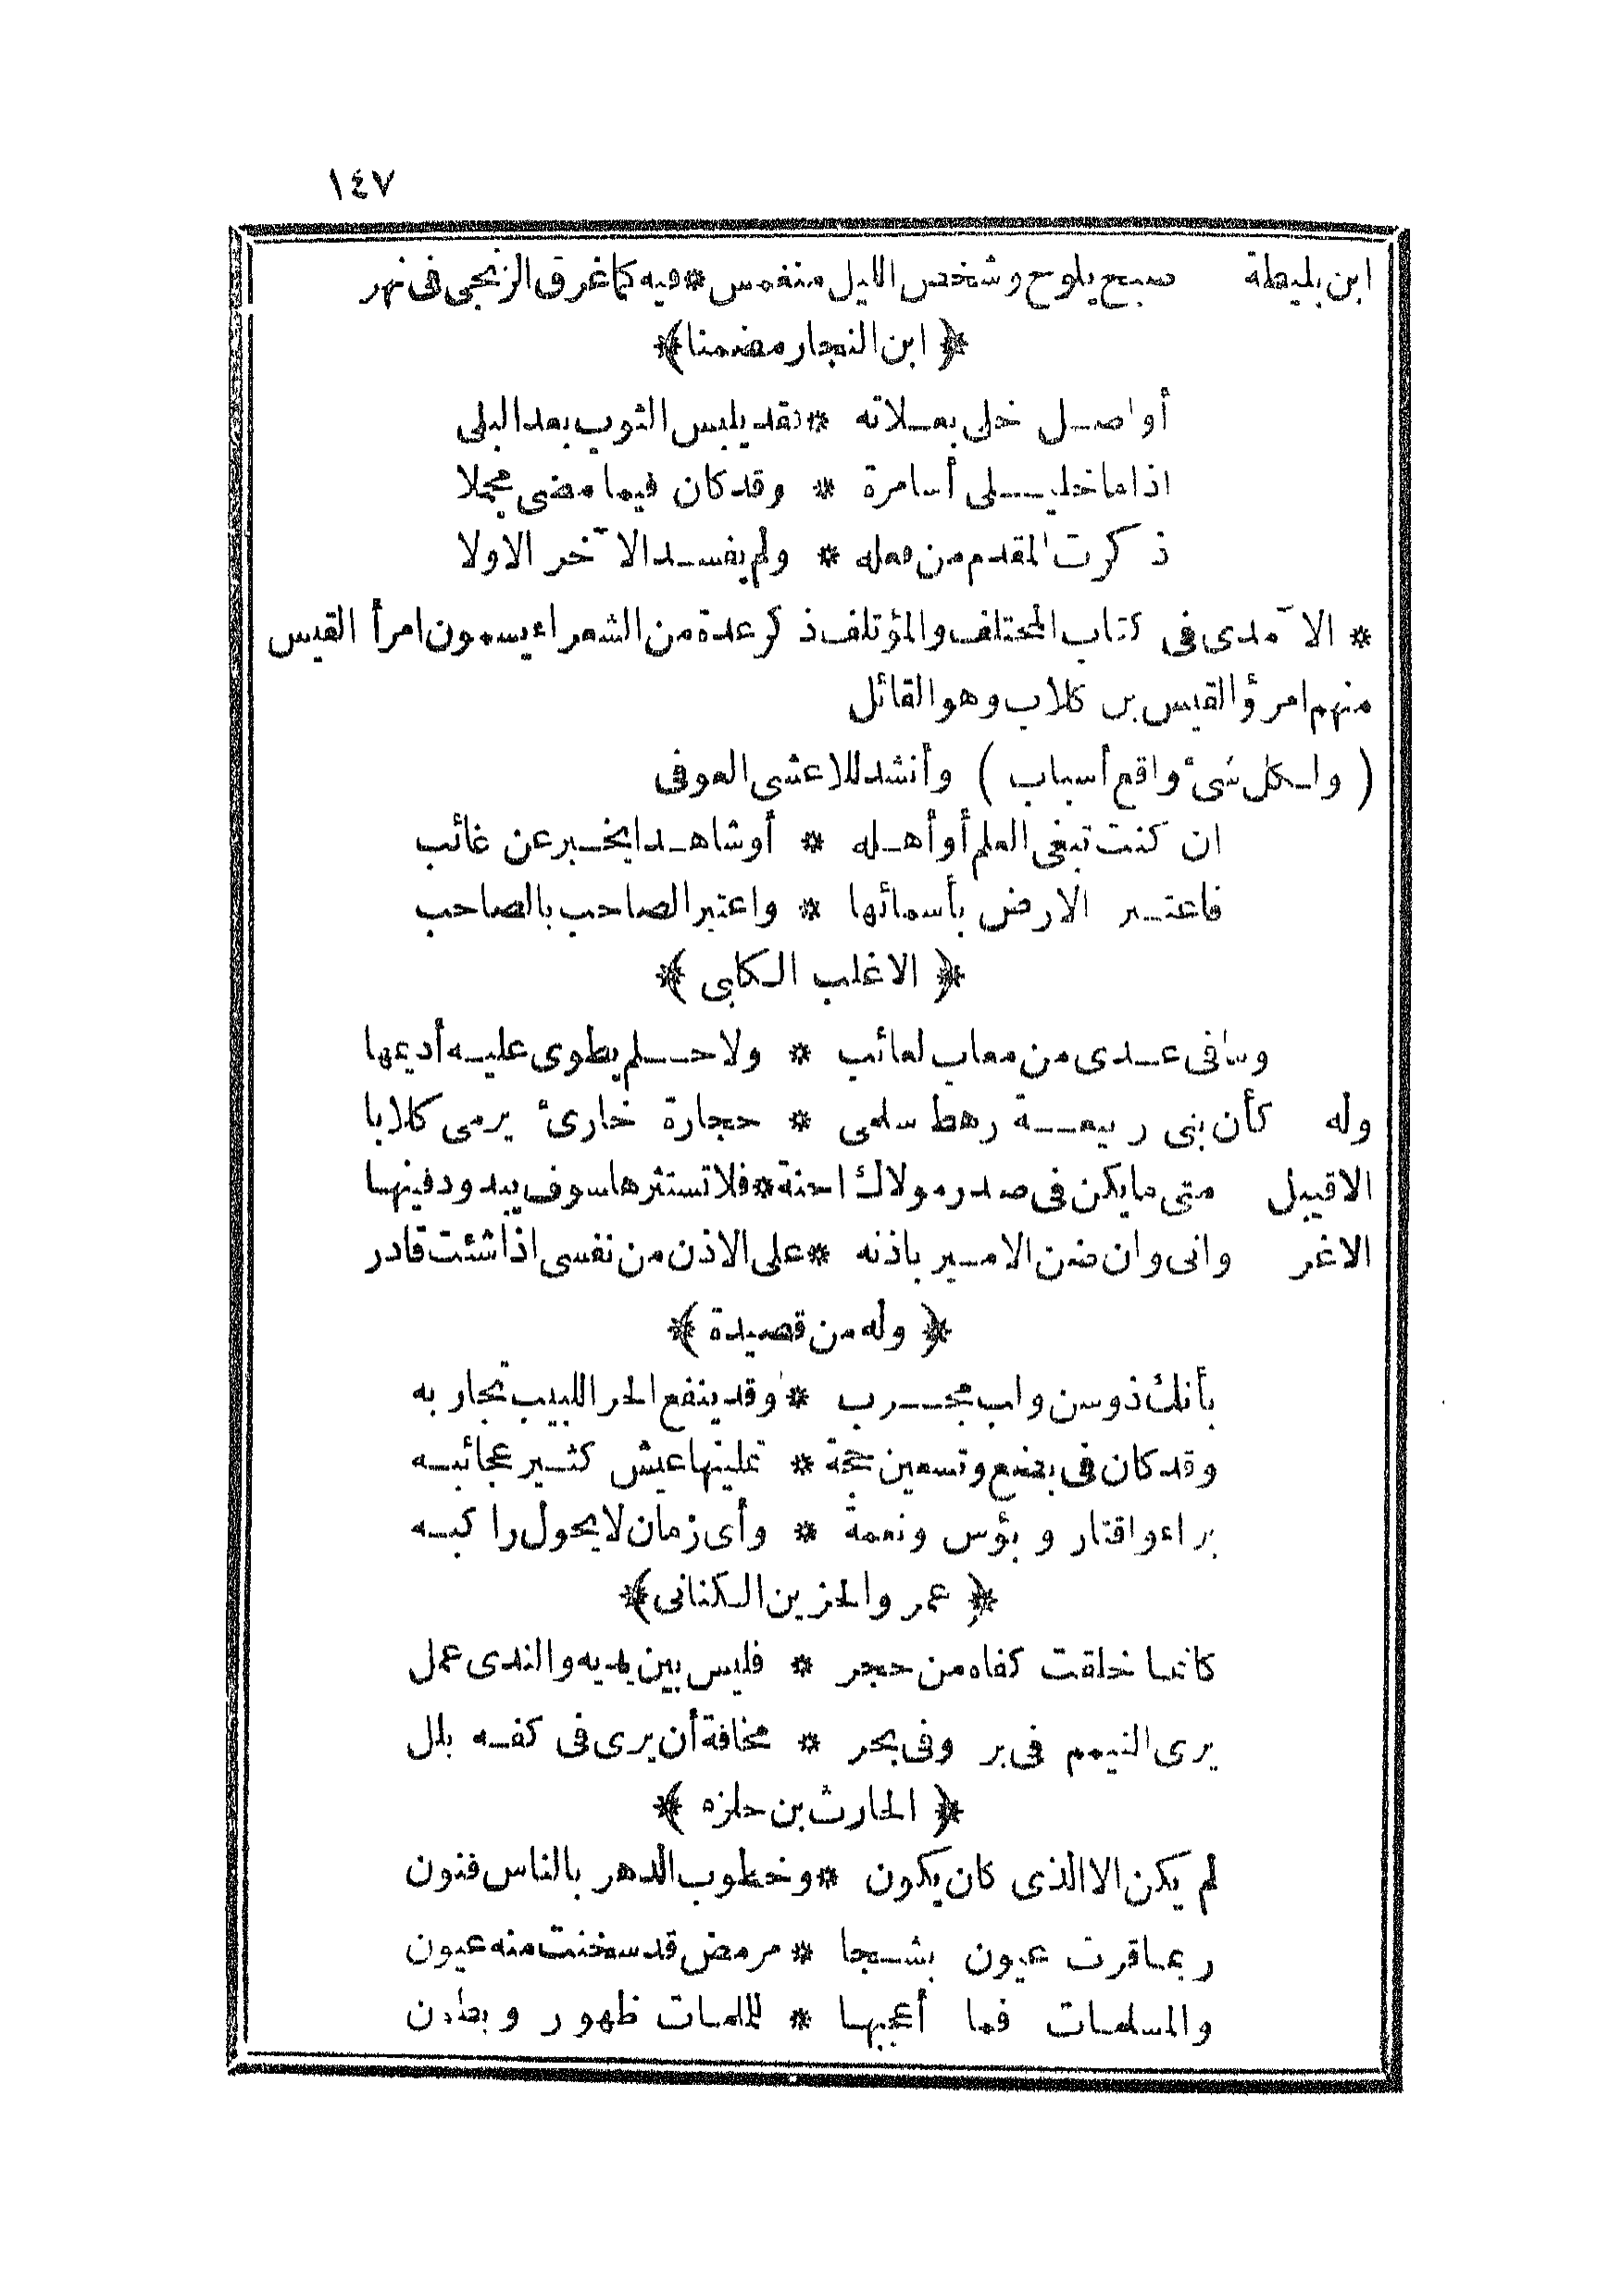 ١٤٧
ابن بليطة صبح يلوح وشخص الليل منغمس * فيه كما غرق الزنجى فى نهر
﴿ ابن النجار مضمنا ﴾
أواصل خلى بعلاته * فقد يلبس الثوب بعد البلى
اذا ما خليلى أسا مرة * وقد كان فيما مضى مجملا
ذكرت المقدم من فعله * ولم يفسد الآخر الاولا
* الآمدى فى كتاب المختلف والمؤتلف ذكر عدة من الشعراء يسمون امرأ القيس
منهم امرؤ القيس بن كلاب وهو القائل
( ولكل شىء واقع أسباب ) وأنشد للاعشى العوفى
ان كنت تبغى العلم أو أهله * أو شاهدا يخبر عن غائب
فاعتبر الارض بأسمائها * واعتبر الصاحب بالصاحب
﴿ الاغلب الكلبى ﴾
وما فى عدى من معاب لعائب * ولا حلم يطوى عليه أديمها
وله كأن بنى ربيعة رهط سلمى * حجارة خارئ يرمى كلابا
الاقيبل متى ما يكن فى صدر مولاك احنة * فلا تستثرها سوف يبدو دفينها
الاغر وانى وان ضن الامير باذنه * على الاذن من نفسى اذا شئت قادر
﴿ وله من قصيدة ﴾
بأنك ذو سن ولب مجرب * وقد ينفع الحر اللبيب تجاربه
وقد كان فى بضع وتسعين حجة * تمليتها عيش كثير عجائبه
براء واقتار وبؤس ونعمة * وأى زمان لا يحول راكبه
﴿ عمر والحزين الكنانى ﴾
كانما خلقت كفاه من حجر * فليس بين يديه والندى عمل
يرى التيمم فى بر وفى بحر * مخافة أن يرى فى كفه بلل
﴿ الحارث بن حلزه ﴾
لم يكن الا الذى كان يكون * وخطوب الدهر بالناس فنون
ربما قرت عيون بشجا * مرمض قد سخنت منه عيون
والملمات فما أعجبها * للملمات ظهور وبطون